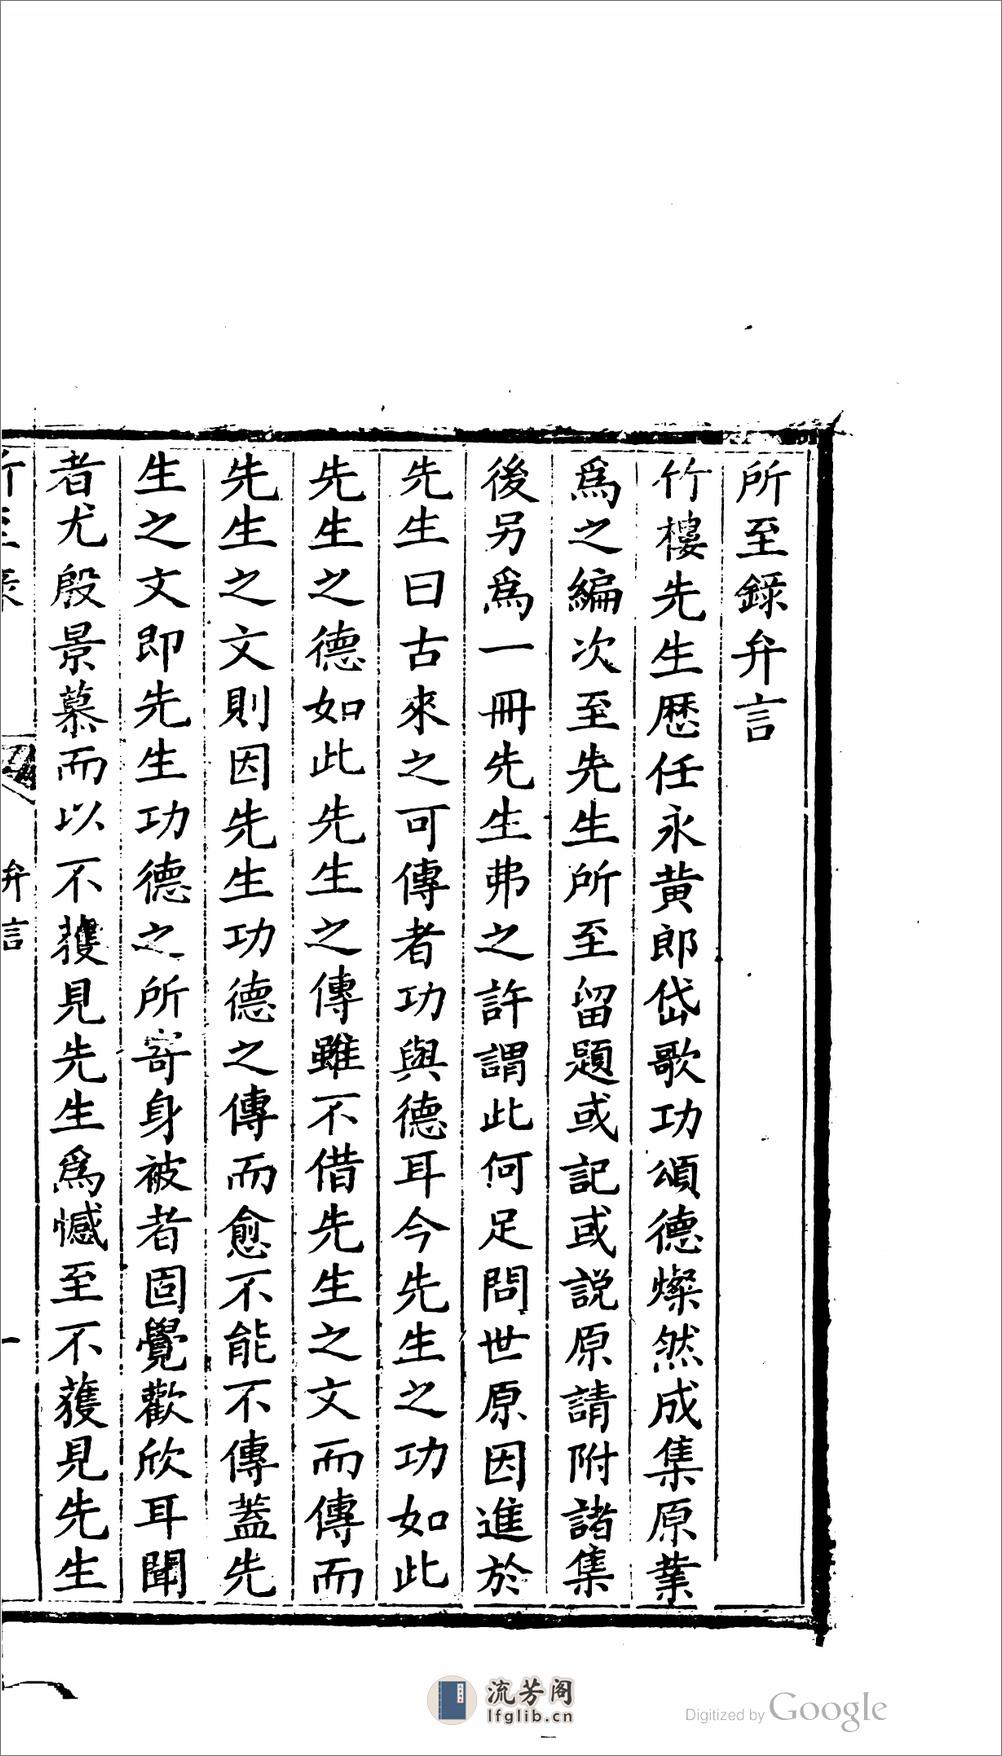 所至錄弁言
竹樓先生歷任永黄郎岱歌功頌德燦然成集原業
爲之編次至先生所至留題或記或説原請附諸集
後另爲一冊先生弗之許謂此何足問世原因進於
先生曰古來之可傳者功與德耳今先生之功如此
先生之德如此先生之傳雖不借先生之文而傳而
先生之文則因先生功德之傳而愈不能不傳蓋先
生之文即先生功德之所寄身被者固覺歡欣耳聞
者尤殷景慕而以不獲見先生爲憾至不獲見先生
所至錄 弁言 一
流芳阁
lfglib.cn
Digitized by Google